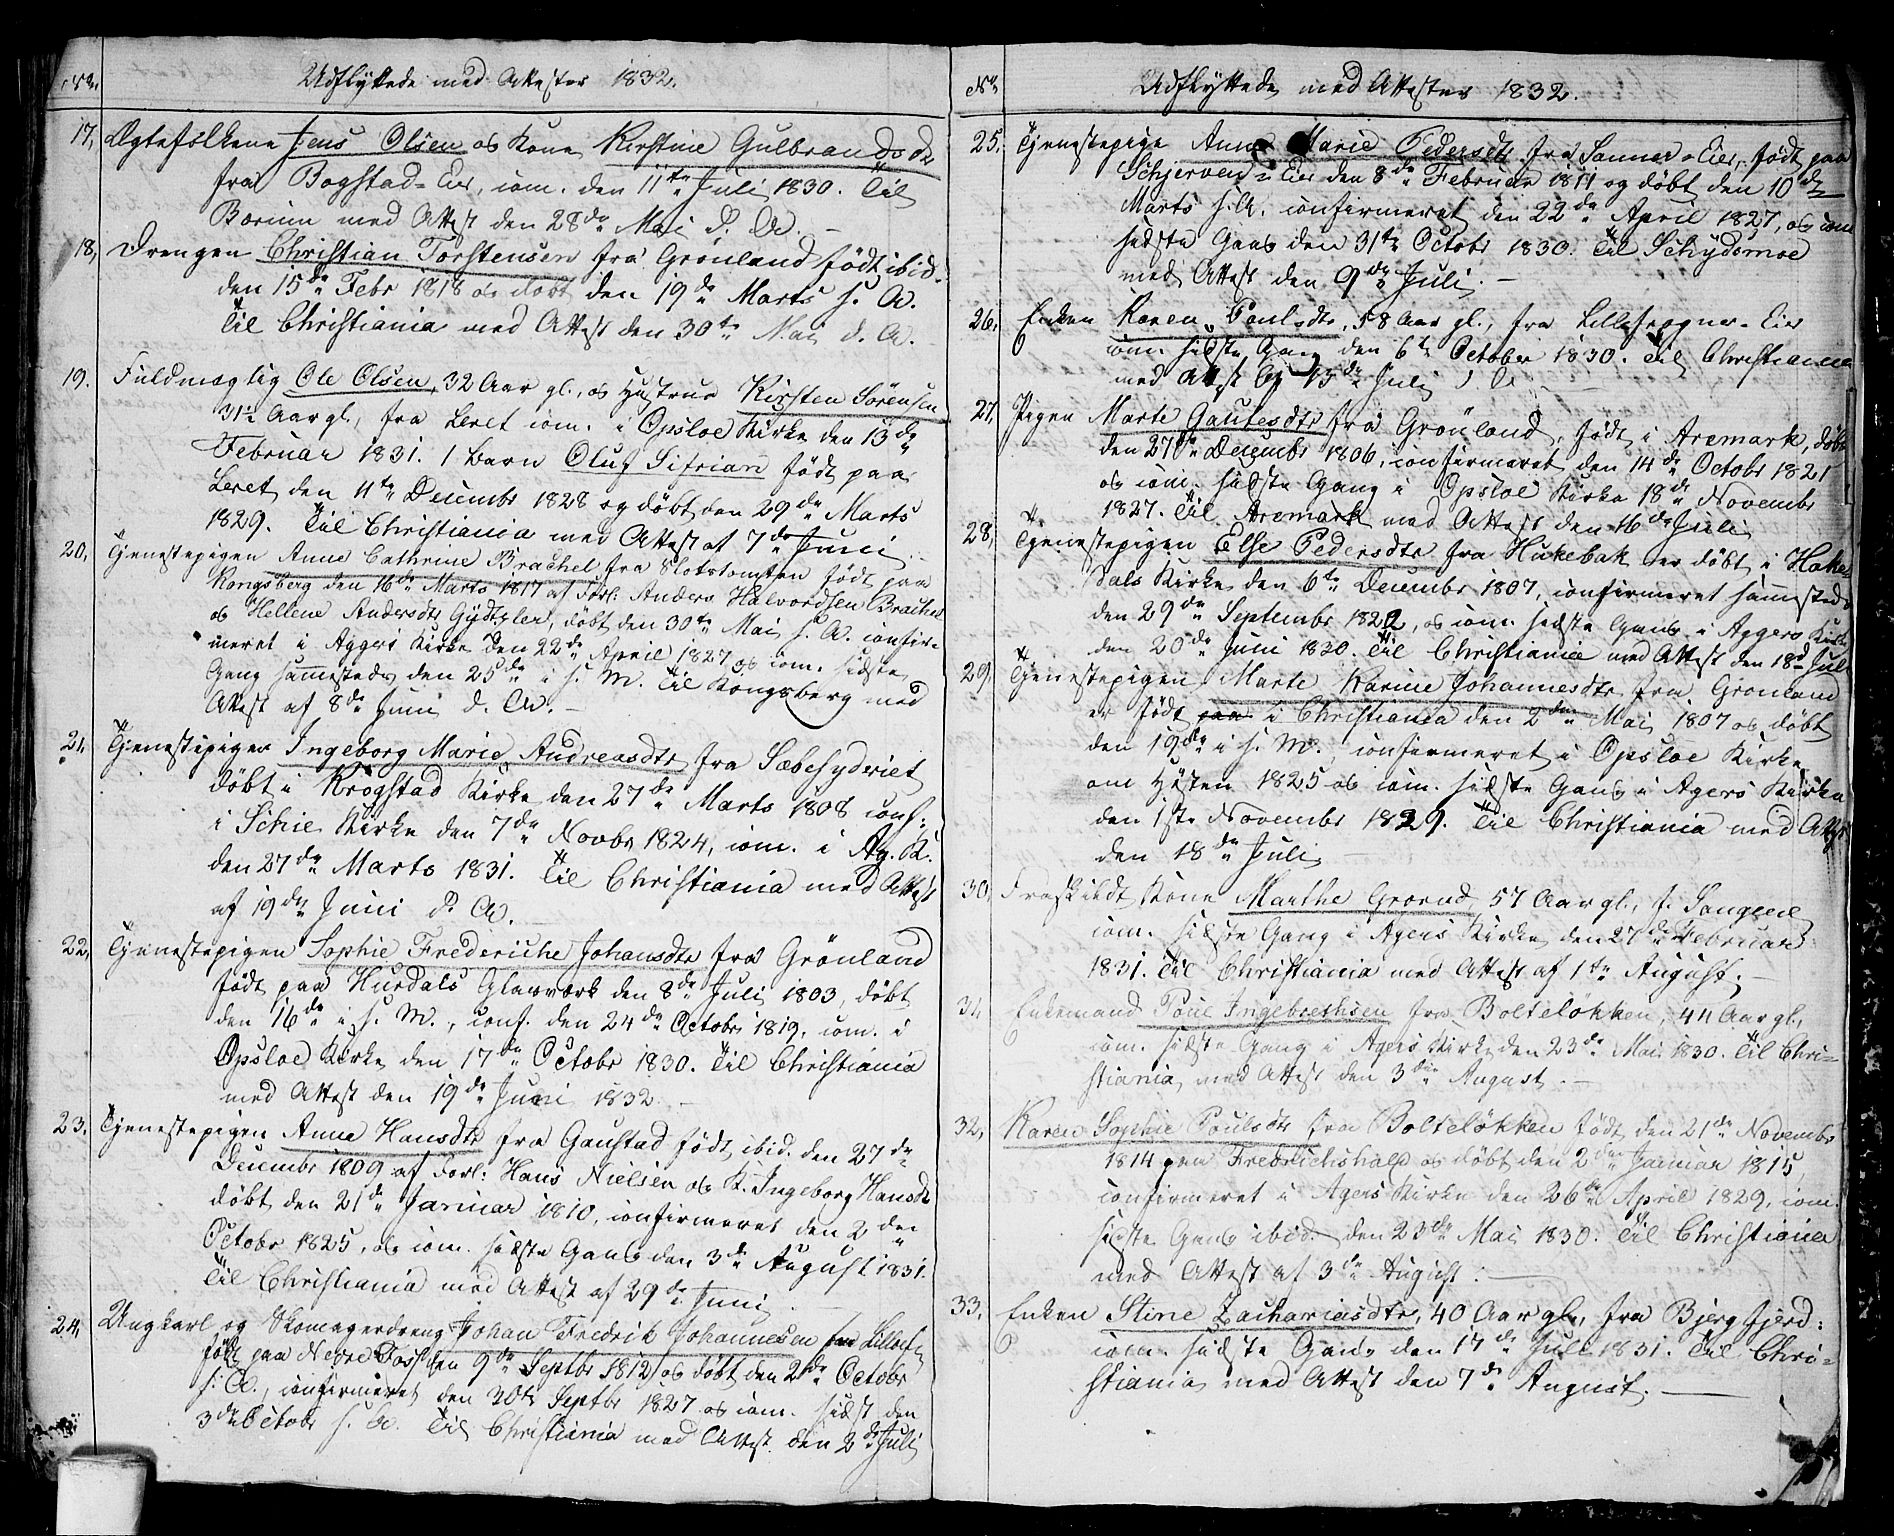 No. Udflyttede med Attester 1832.
17, Ægtefolkene Jens Olsen og Kone Kirstine Gulbrandsdr
fra Bogstad-Eier, com. den 11te Juli 1830. Til
Bærum med Attest den 28de Mai d. A. –
18, Drengen Christian Torstensen fra Grönland födt ibid.
den 15de Febr 1818 og döbt den 19de Marts s. A.
Til Christiania med Attest den 30te Mai d. A.
19. Fuldmægtig Ole Olsen, 32 Aar gl., og Hustrue Kirsten Sörensen
31½ Aar gl., fra Leret com. i Opsloe Kirke den 13de
Februar 1831. 1 Barn Oluf Sifrian födt paa
Leret den 11te Decembr 1828 og döbt den 29de Marts
1829. Til Christiania med Attest af 7de Juni
20, Tjenestepigen Anne Cathrine Brachel fra Slotstomten födt paa
Kongsberg den 16de Marts 1817 af Forl. Anders Halvordsen Brachel
og Hellene Andersdtr, döbt den 30te Mai s. A. confir-
meret i Aggers Kirke den 22de April 1827 og com. sidste
Gang sammesteds den 25de i s. M. Til Kongsberg med
Attest af 8de Juni d. A. –
21, Tjenestepigen Ingeborg Marie Andreasdtr fra Sæbesyderiet
döbt i Krogstad Kirke den 27de Marts 1808 conf:
i Schie Kirke den 7de Novbr 1824, com. i Ag. K.
den 27de Marts 1831. Til Christiania med Attest
af 19de Juni d. A.
22, Tjenestepigen Sophie Frederiche Johansdtr fra Grönland
födt paa Hurdals Glasværk den 8de Juli 1803, döbt
den 16de i s. M., conf. den 24de Octobr 1819, com. i
Opsloe Kirke den 17de Octobr 1830. Til Christiania
med Attest den 19de Juni 1832. –
23. Tjenestepigen Anne Hansdtr fra Gaustad födt ibid. den 27de
Decembr 1809 af Forl: Hans Nielsen og K. Ingeborg Hansdr
döbt den 21de Januar 1810, confirmeret den 2den
Octobr 1825, og com. sidste Gang den 3de August 1831.
Til Christiania med Attest af 29de Juni
24, Ungkarl og Skomagerdreng Johan Fredrik Johannesen fra
födt paa Nedre Foss den 9de Septbr 1812 og döbt den 2den Octobr
s. A., confirmeret den 30te Septbr 1827 og com. sidst den
3de Octobr s. A. Til Christiania med Attest den 2de Juli
No. Udflyttede med Attester 1832.
25, Tjenestepige Anne Marie Pedersdtr fra Sanner-Eier, födt paa
Schjerven-Eier den 8de Februar 1811 og döbt den 10de
Marts s. A. confirmeret den 22de April 1827, og com
sidste Gang den 31te Octobr 1830. Til Schydsmoe
med Attest den 9de Juli. –
26, Enken Karen Poulsdtr, 58 Aar gl., fra Lillefrogner-Eier
com. sidste Gang den 6te October 1830. Til Christiania
med Attest af 13de Juli d. A. –
27, Pigen Marte Gautesdtr fra Grönland, födt i Aremark, döbt
den 27de Decembr 1806, confirmeret den 14de Octobr 1821
og com. sidste Gang i Opsloe Kirke 18de Novembr
1827. Til Aremark med Attest den 16de Juli
28, Tjenestepigen Else Pedersdtr fra Hukebak er döbt i Hake-
dals Kirke den 6te Decembr 1807, confirmeret sammesteds
den 29de Septembr 1822, og com. sidste Gang i Aggers Kirke
den 20de Juni 1830. Til Christiania med Attest den 18de Juli
29, Tjenestepigen Marte Karine Johannesdtr fra Grönland
er födt paa i Christiania den 2den Mai 1807 og döbt
den 19de i s. M., confirmeret i Opsloe Kirke
om Hösten 1825 og com. sidste Gang i Agers Kirke
den 1ste Novembr 1829. Til Christiania med Attest
den 18de Juli –
30, Fraskildt Kone Marthe Grorud, 57 Aar gl., f. Sangene
com. sidste Gang i Agers Kirke den 27de Februar
1831. Til Christiania med Attest af 1te August. –
31, Enkemand Poul Ingebrethsen fra Bolteløkken, 44 Aar gl.,
com. sidste Gang i Agers Kirke den 23de Mai 1830. Til Chri-
stiania med Attest den 3die August. –
32, Karen Sophie Poulsdtr fra Bolteløkken födt den 21de Novembr
1814 paa Fredrichshald og döbt den 2den Januar 1815
confirmeret i Agers Kirke den 26de April 1829, com.
sidste Gang ibid. den 23de Mai 1830. Til Christiania
med Attest af 3de August: –
33, Enken Stine Zachariasdtr, 40 Aar gl., fra Bjergfjerd:
com. sidste Gang den 17de Juli 1831. Til Chri-
stiania med Attest den 7de August. –